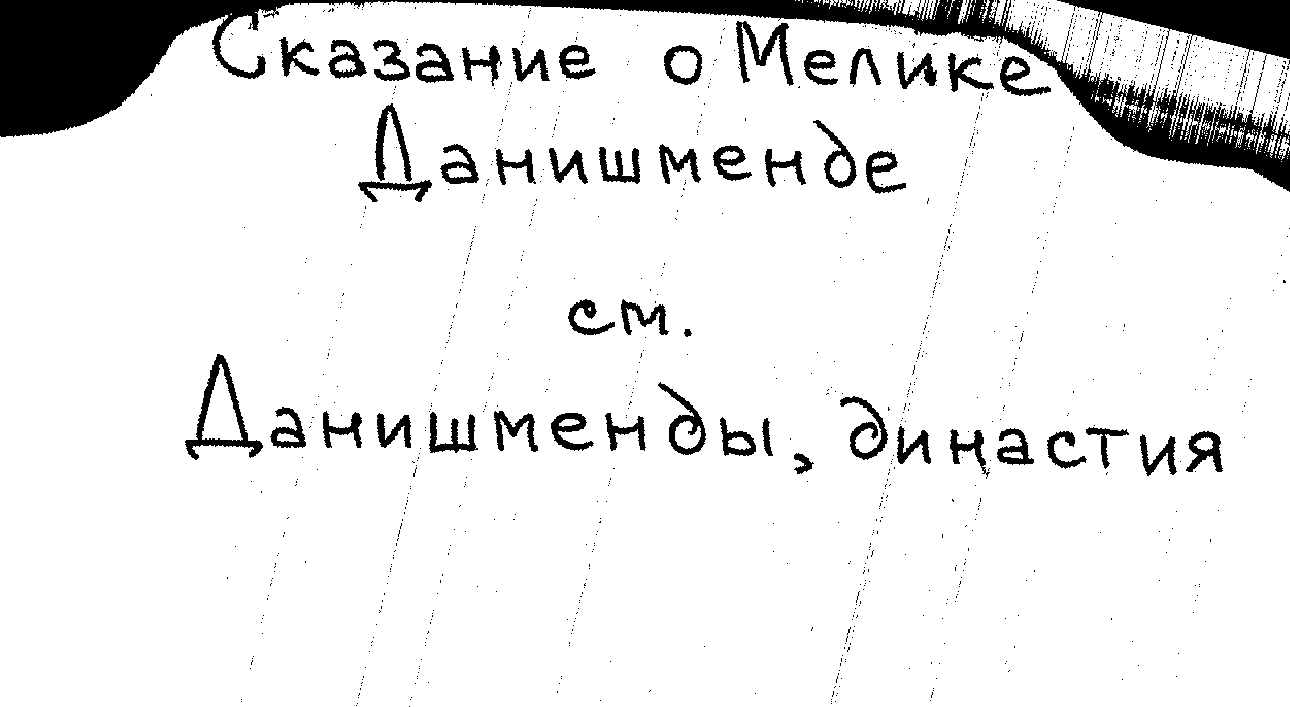 Сказание о Мелике
Данишменде
см.
Данишменды, династия